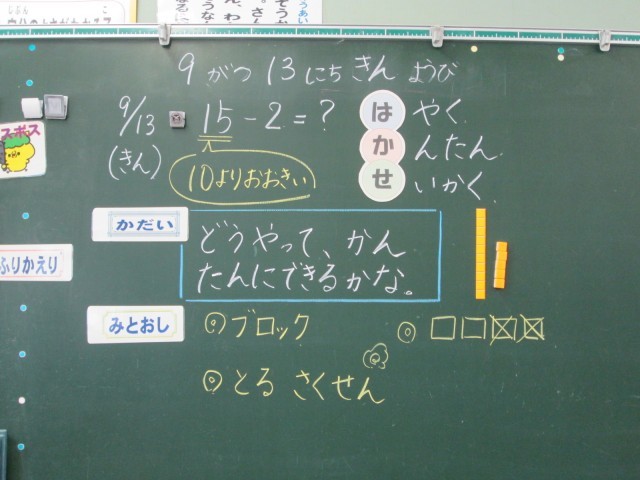 9がつ13にちきんようび
9/13
(きん)
15-2=?
10よりおおきい
はやく
かんたん
せいかく
かだい
どうやって、かん
たんにできるかな。
ふりかえり
みとおし
◎ブロック
◎□□☒☒
◎とるさくせん